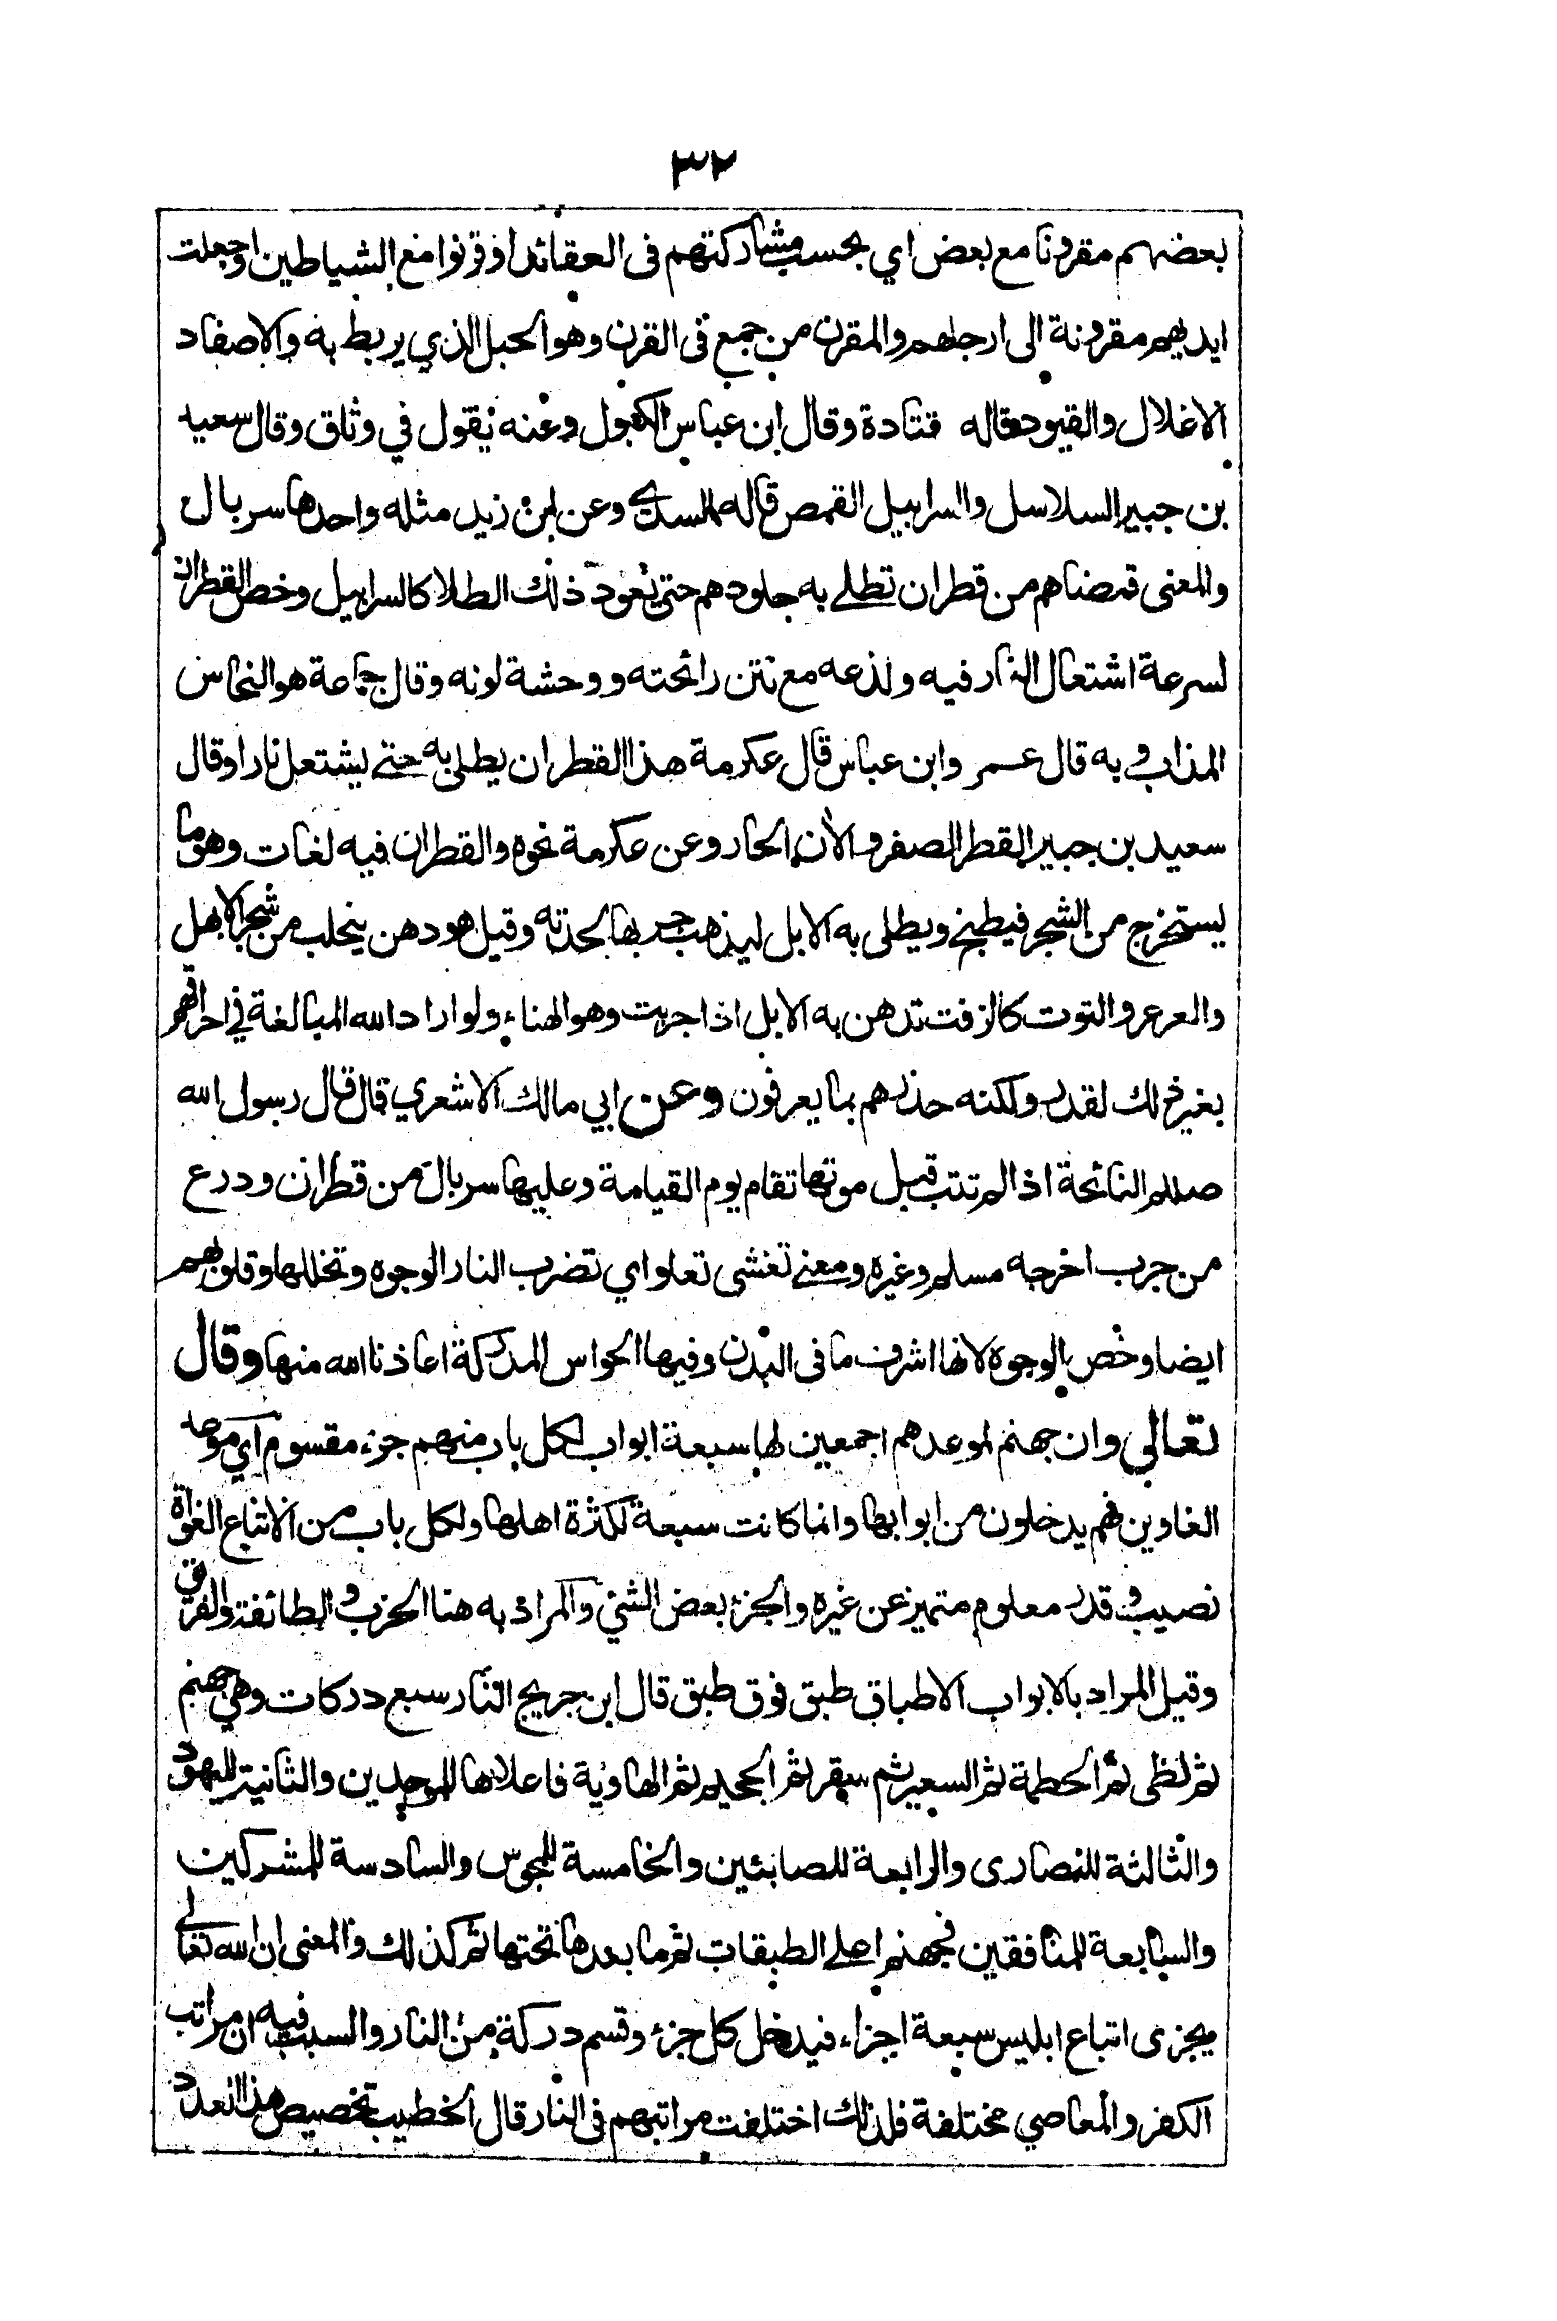 ٣٢
بعضهم مقرونا مع بعض اي بحسب مشاركتهم فى العقائد او قرنوا مع الشياطين او جعلت
ايديهم مقرونة الى ارجلهم والمقرن من جمع فى القرن وهو الحبل الذي يربط به والاصفاد
الاغلال والقيود قاله قتادة وقال ابن عباس الكبول وعنه يقول في وثاق وقال سعيد
بن جبير السلاسل والسرابيل القمص قاله السدي وعن ابن زيد مثله واحدها سربال
والمعنى قمصناهم من قطران تطلے به جلودهم حتى يعود ذلك الطلا كالسرابيل وخص القطران
لسرعة اشتعال النار فيه ولذعه مع نتن رائحته ووحشة لونه وقال جماعة هو النحاس
المذاب و به قال عمر وابن عباس قال عكرمة هذا القطران يطلى به حتے يشتعل نارا وقال
سعيد بن جبير القطر الصفر والان الحار وعن عكرمة نحوه والقطران فيه لغات وهو ما
يستخرج من الشجر فيطبخ ويطلى به الابل ليذهب جربها لحدته وقيل هو دهن ينحلب من شجر الابهل
والعرعر والتوت كالزفت تدهن به الابل اذا جربت وهو الهناء ولو اراد الله المبالغة في احراقهم
بغير ذلك لقدر ولكنه حذرهم بما يعرفون وعن ابي مالك الاشعري قال قال رسول الله
صللم النائحة اذا لم تتب قبل موتها تقام يوم القيامة وعليها سربال من قطران ودرع
من جرب اخرجه مسلم وغيره ومعنے تغشى تعلو اي تضرب النار الوجوه وتخللها وقلوبهم
ايضا وخص الوجوه لانها اشرف ما فى البدن وفيها الحواس المدركة اعاذنا الله منها وقال
تعالى وان جهنم لموعدهم اجمعين لها سبعة ابواب لكل باب منهم جزء مقسوم اي موعد
الغاوين فهم يدخلون من ابوابها وانما كانت سبعة لكثرة اهلها ولكل باب من الاتباع الغواة
نصيب و قدر معلوم متميز عن غيره والجزء بعض الشئ والمراد به هنا الحزب و الطائفة والفريق
وقيل المراد بالابواب الاطباق طبق فوق طبق قال ابن جريج النار سبع دركات وهي جهنم
ثم لظى ثم الحطمة ثم السعير ثم سقر ثم الجحيم ثم الهاوية فاعلاها للموحدين والثانية لليهود
والثالثة للنصارى والرابعة للصابئين والخامسة للمجوس والسادسة للمشركين
والسابعة للمنافقين فجهنم اعلے الطبقات ثم ما بعدها تحتها ثم كذلك والمعنى ان الله تعالى
يجزى اتباع ابليس سبعة اجزاء فيدخل كل جزء وقسم دركة من النار والسبب فيه ان مراتب
الكفر والمعاصي مختلفة فلذلك اختلفت مراتبهم فى النار قال الخطيب تخصيص هذا العدد